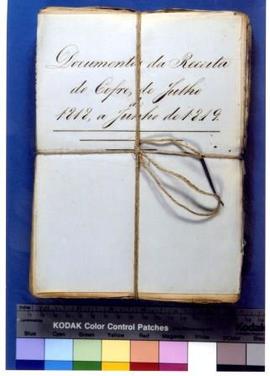 Documentos da Receita
do Cofre, de Julho
1818, a Junho de 1819.
KODAK Color Control Patches
Blue Cyan Green Yellow Red Magenta White 3/Color Black